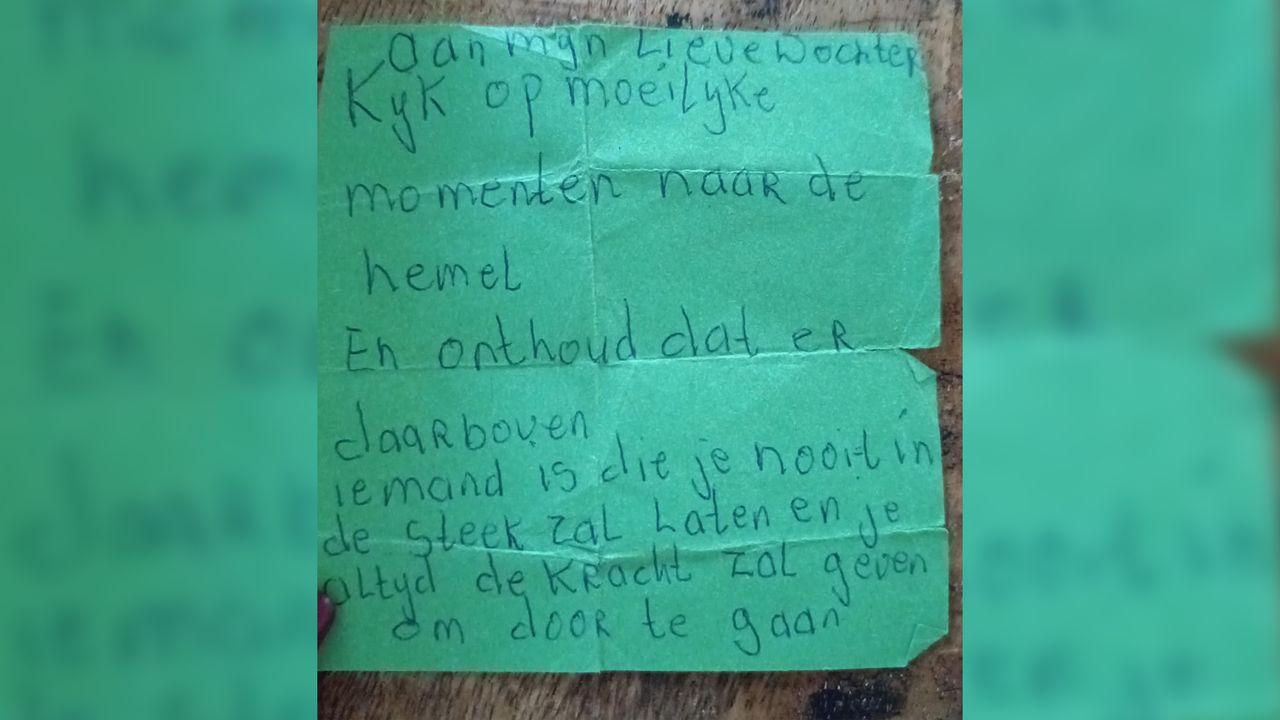 aan myn Lieve Dochter
Kyk op moeilyke
momenten naar de
hemel
En onthoud dat er
daarboven
iemand is die je nooit in
de steek zal Laten en je
altyd de kracht zal geven
om door te gaan